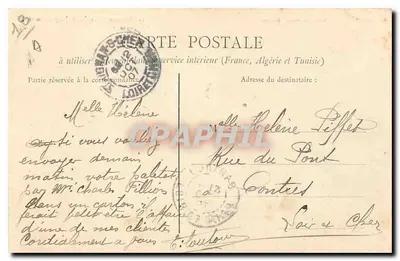 CARTE POSTALE
à utiliser seulement dans le service intérieur (France, Algérie et Tunisie)
Partie réservée à la correspondance
Adresse du destinataire :
Melle Hélène
si vous voulez
envoyer demain
matin votre paletot
par Mr Charles
Dans un carton il
ferait peut être l'affaire
d'une de mes clientes
Cordialement à vous
Melle Hélène Piffet
Rue du Pont
Contres
Loir et Cher
CPAPHIL